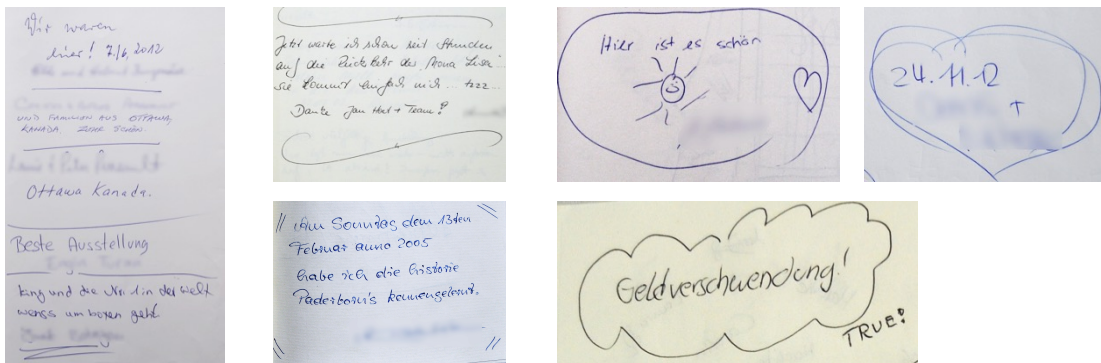 Wir waren
hier! 7/6, 2012
UND FAMILIEN AUS OTTAWA,
KANADA. SEHR SCHÖN.
Ottawa Kanada.
Beste Ausstellung
King und die Nr. 1 in der Welt
wenss um boxen geht
Jetzt warte ich schon seit Stunden
auf die Rückkehr der Mona Lisa...
sie kommt einfach nich... tzzz...
Danke Jan Hort + Team!?
Am Sonntag dem 13ten
Februar anno 2005
habe ich die historie
Paderborn's kennengelernt.
Hier ist es schön
24. 11. 12
Geldverschwendung!
TRUE?